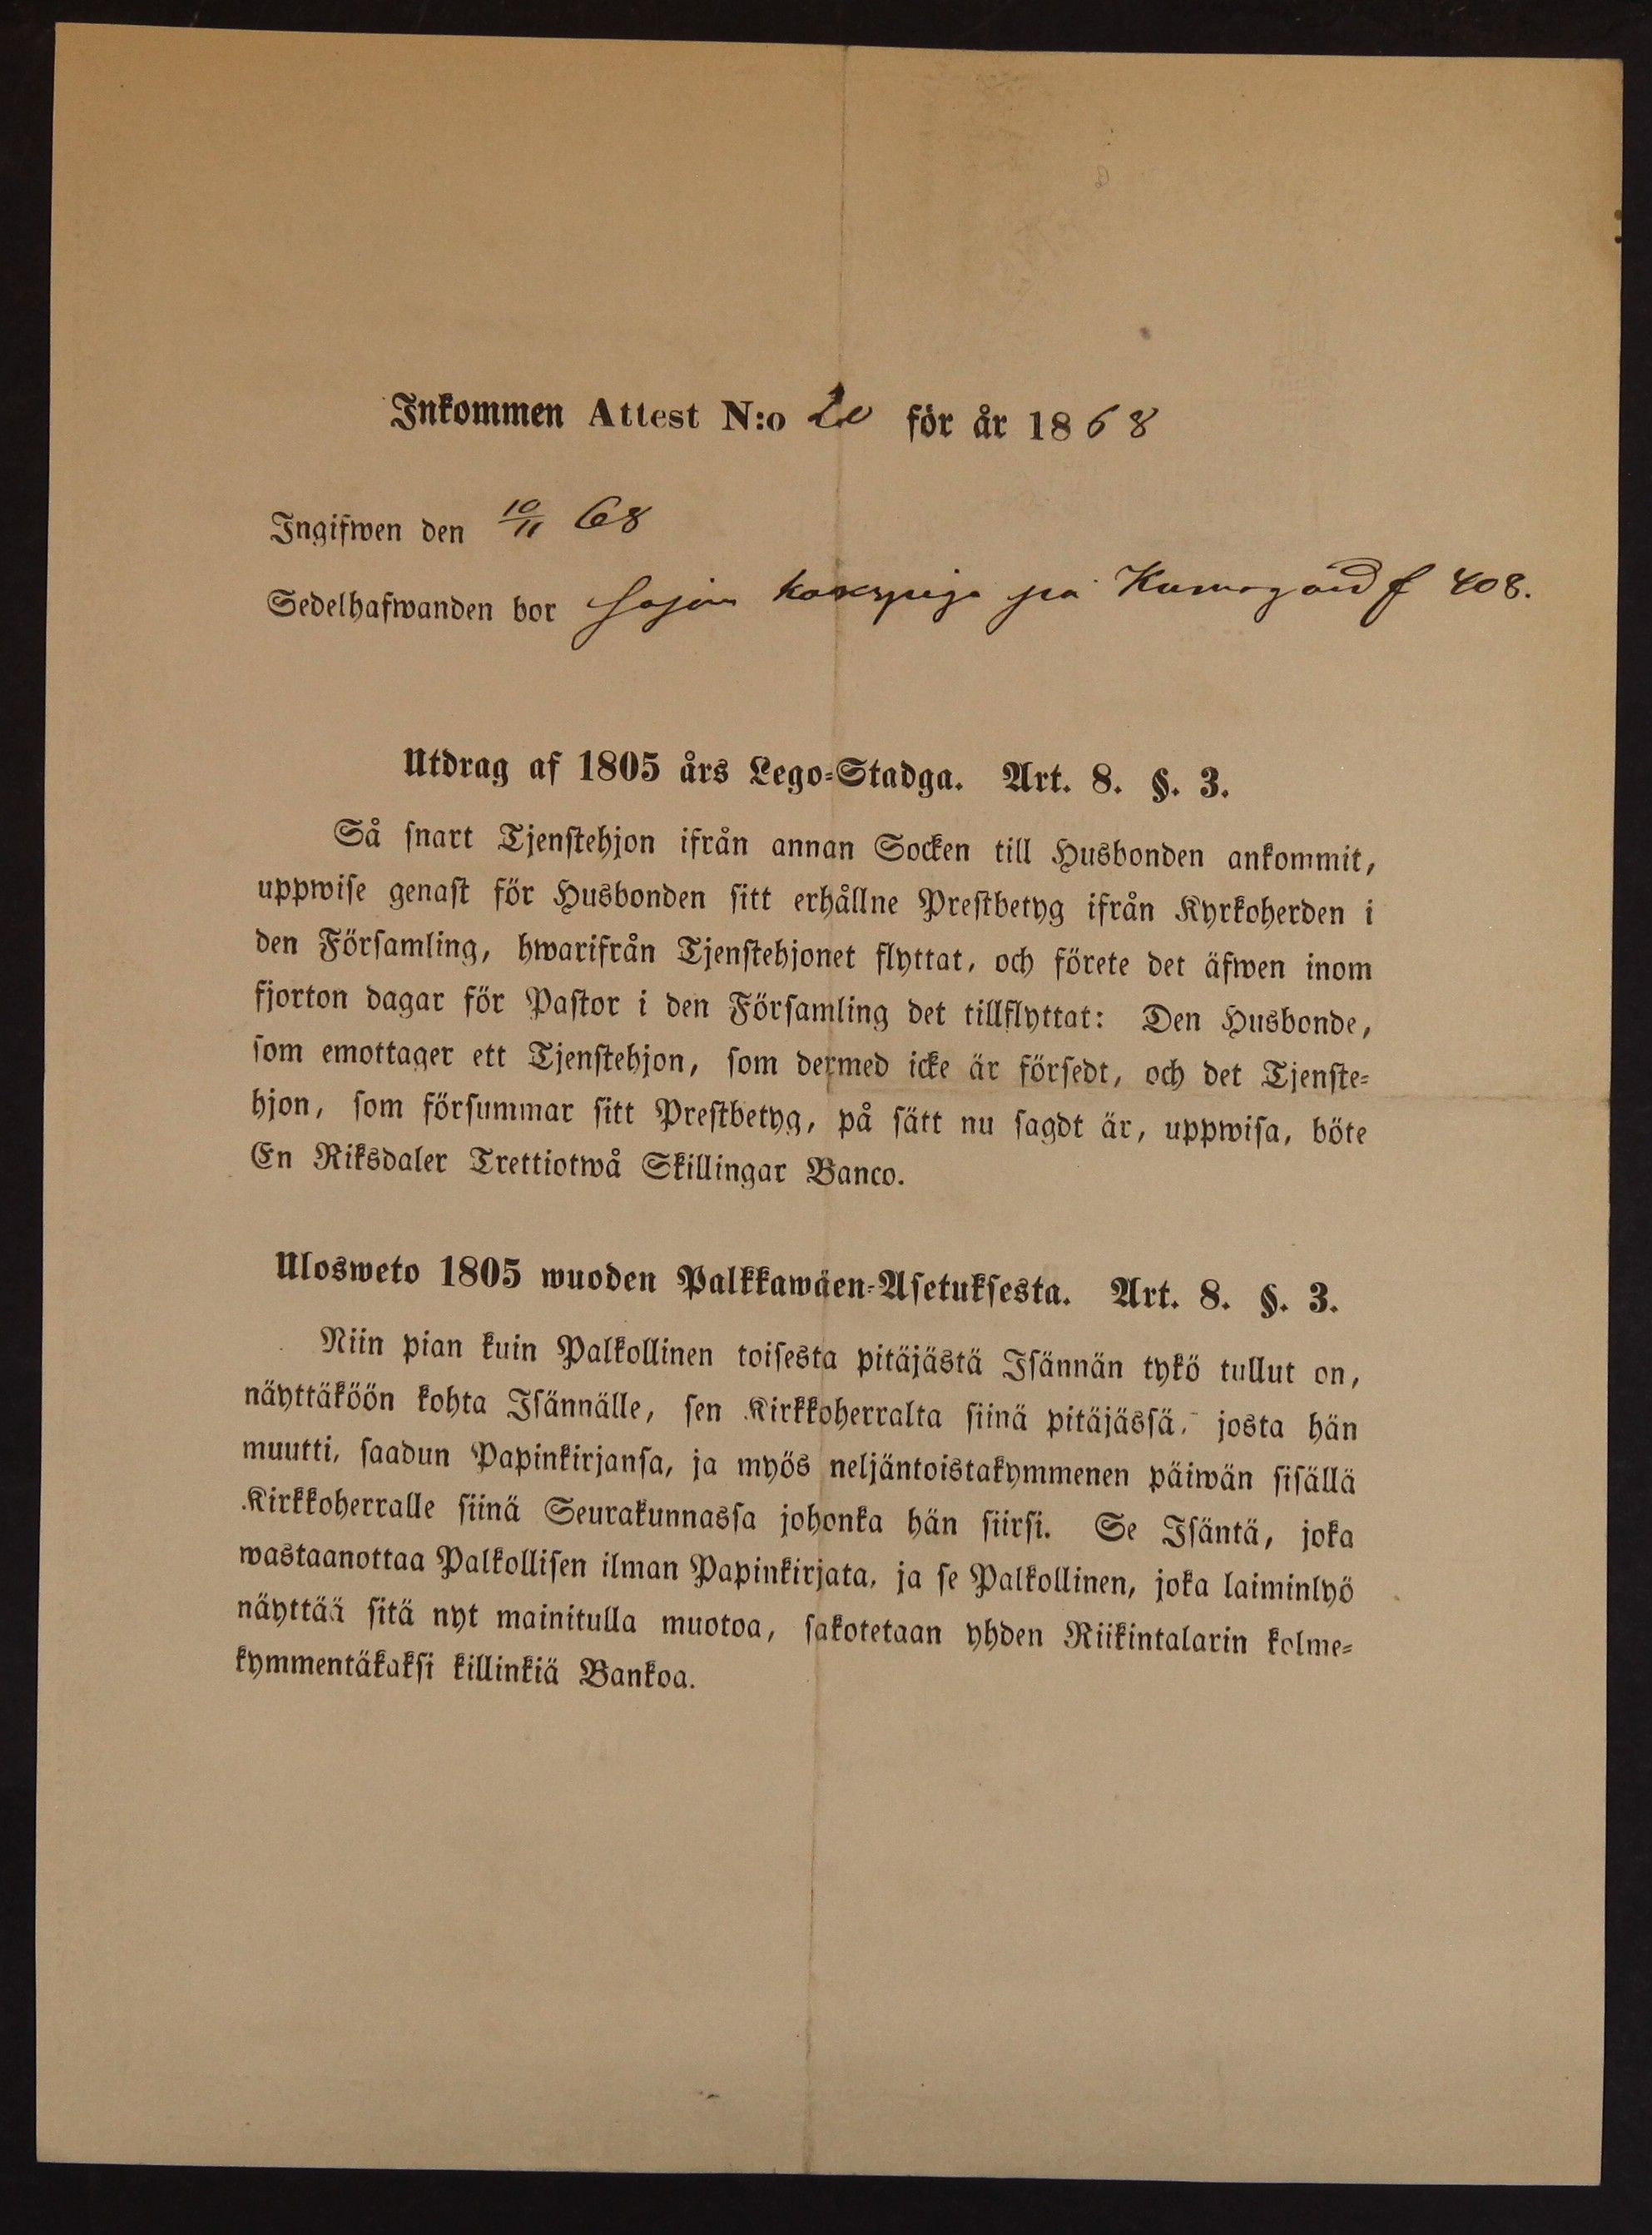 Inkommen Attest N:o 20 för år 1868
Ingifwen den 10/11 68
Sedelhafwanden bor såsom kokspiga på Kumogård f 408.
Utdrag af 1805 års Lego-Stadga. Art. 8. §. 3.
Så snart Tjenstehjon ifrån annan Socken till Husbonden ankommit,
uppwise genast för Husbonden sitt erhållne Prestbetyg ifrån Kyrkoherden i
den Församling, hwarifrån Tjenstehjonet flyttat, och förete det äfwen inom
fjorton dagar för Pastor i den Församling det tillflyttat: Den Husbonde,
som emottager ett Tjenstehjon, som dermed icke är försedt, och det Tjenste-
hjon, som försummar sitt Prestbetyg, på sätt nu sagdt är, uppwisa, böte
En Riksdaler Trettiotwå Skillingar Banco.
Ulosweto 1805 wuoden Palkkawäen-Asetuksesta. Art. 8. §. 3.
Niin pian kuin Palkollinen toisesta pitäjästä Isännän tykö tullut on,
näyttäköön kohta Isännälle, sen Kirkkoherralta siinä pitäjässä, josta hän
muutti, saadun Papinkirjansa, ja myös neljäntoistakymmenen päiwän sisällä
Kirkkoherralle siinä Seurakunnassa johonka hän siirsi. Se Isäntä, joka
wastaanottaa Palkollisen ilman Papinkirjata, ja se Palkollinen, joka laiminlyö
näyttää sitä nyt mainitulla muotoa, sakotetaan yhden Riikintalarin kolme-
kymmentäkaksi killinkiä Bankoa.